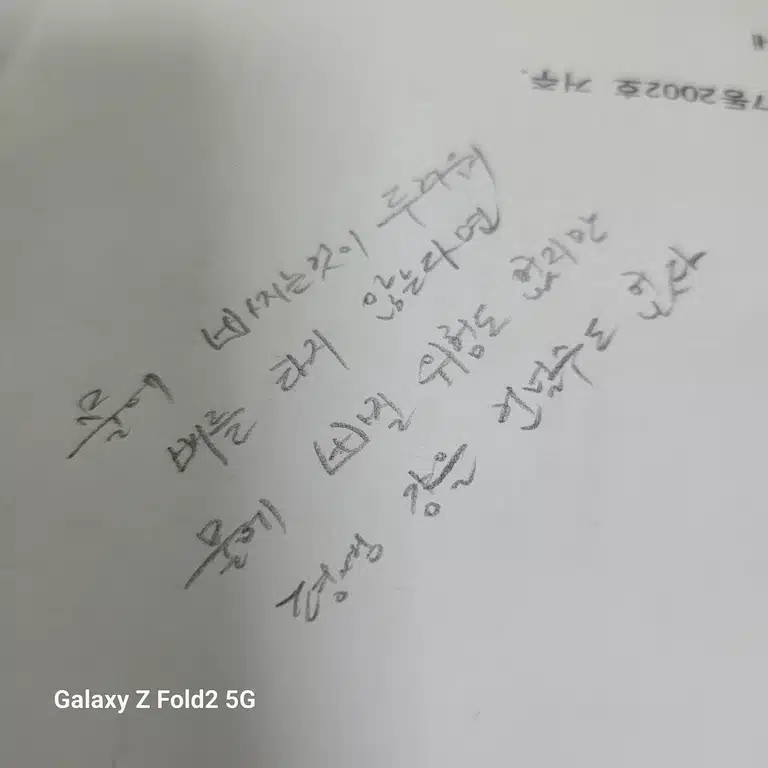 7동2002호 거주.
물에 빠지는것이 두려워
배를 타지 않는다면
물에 빠질 위험도 없지만
평생 강을 건널수도 없다
Galaxy Z Fold2 5G